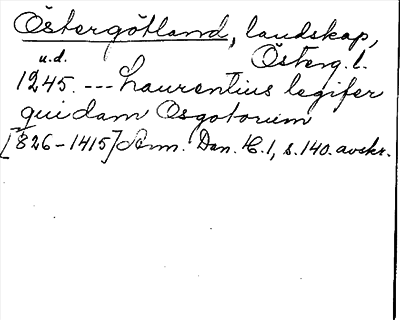 Östergötland, landskap,
Österg. l.
u.d.
1245. --- Laurentius legifer
quidam Osgotorum
[826-1415] Ann. Dan. H. 1, s. 140. avskr.